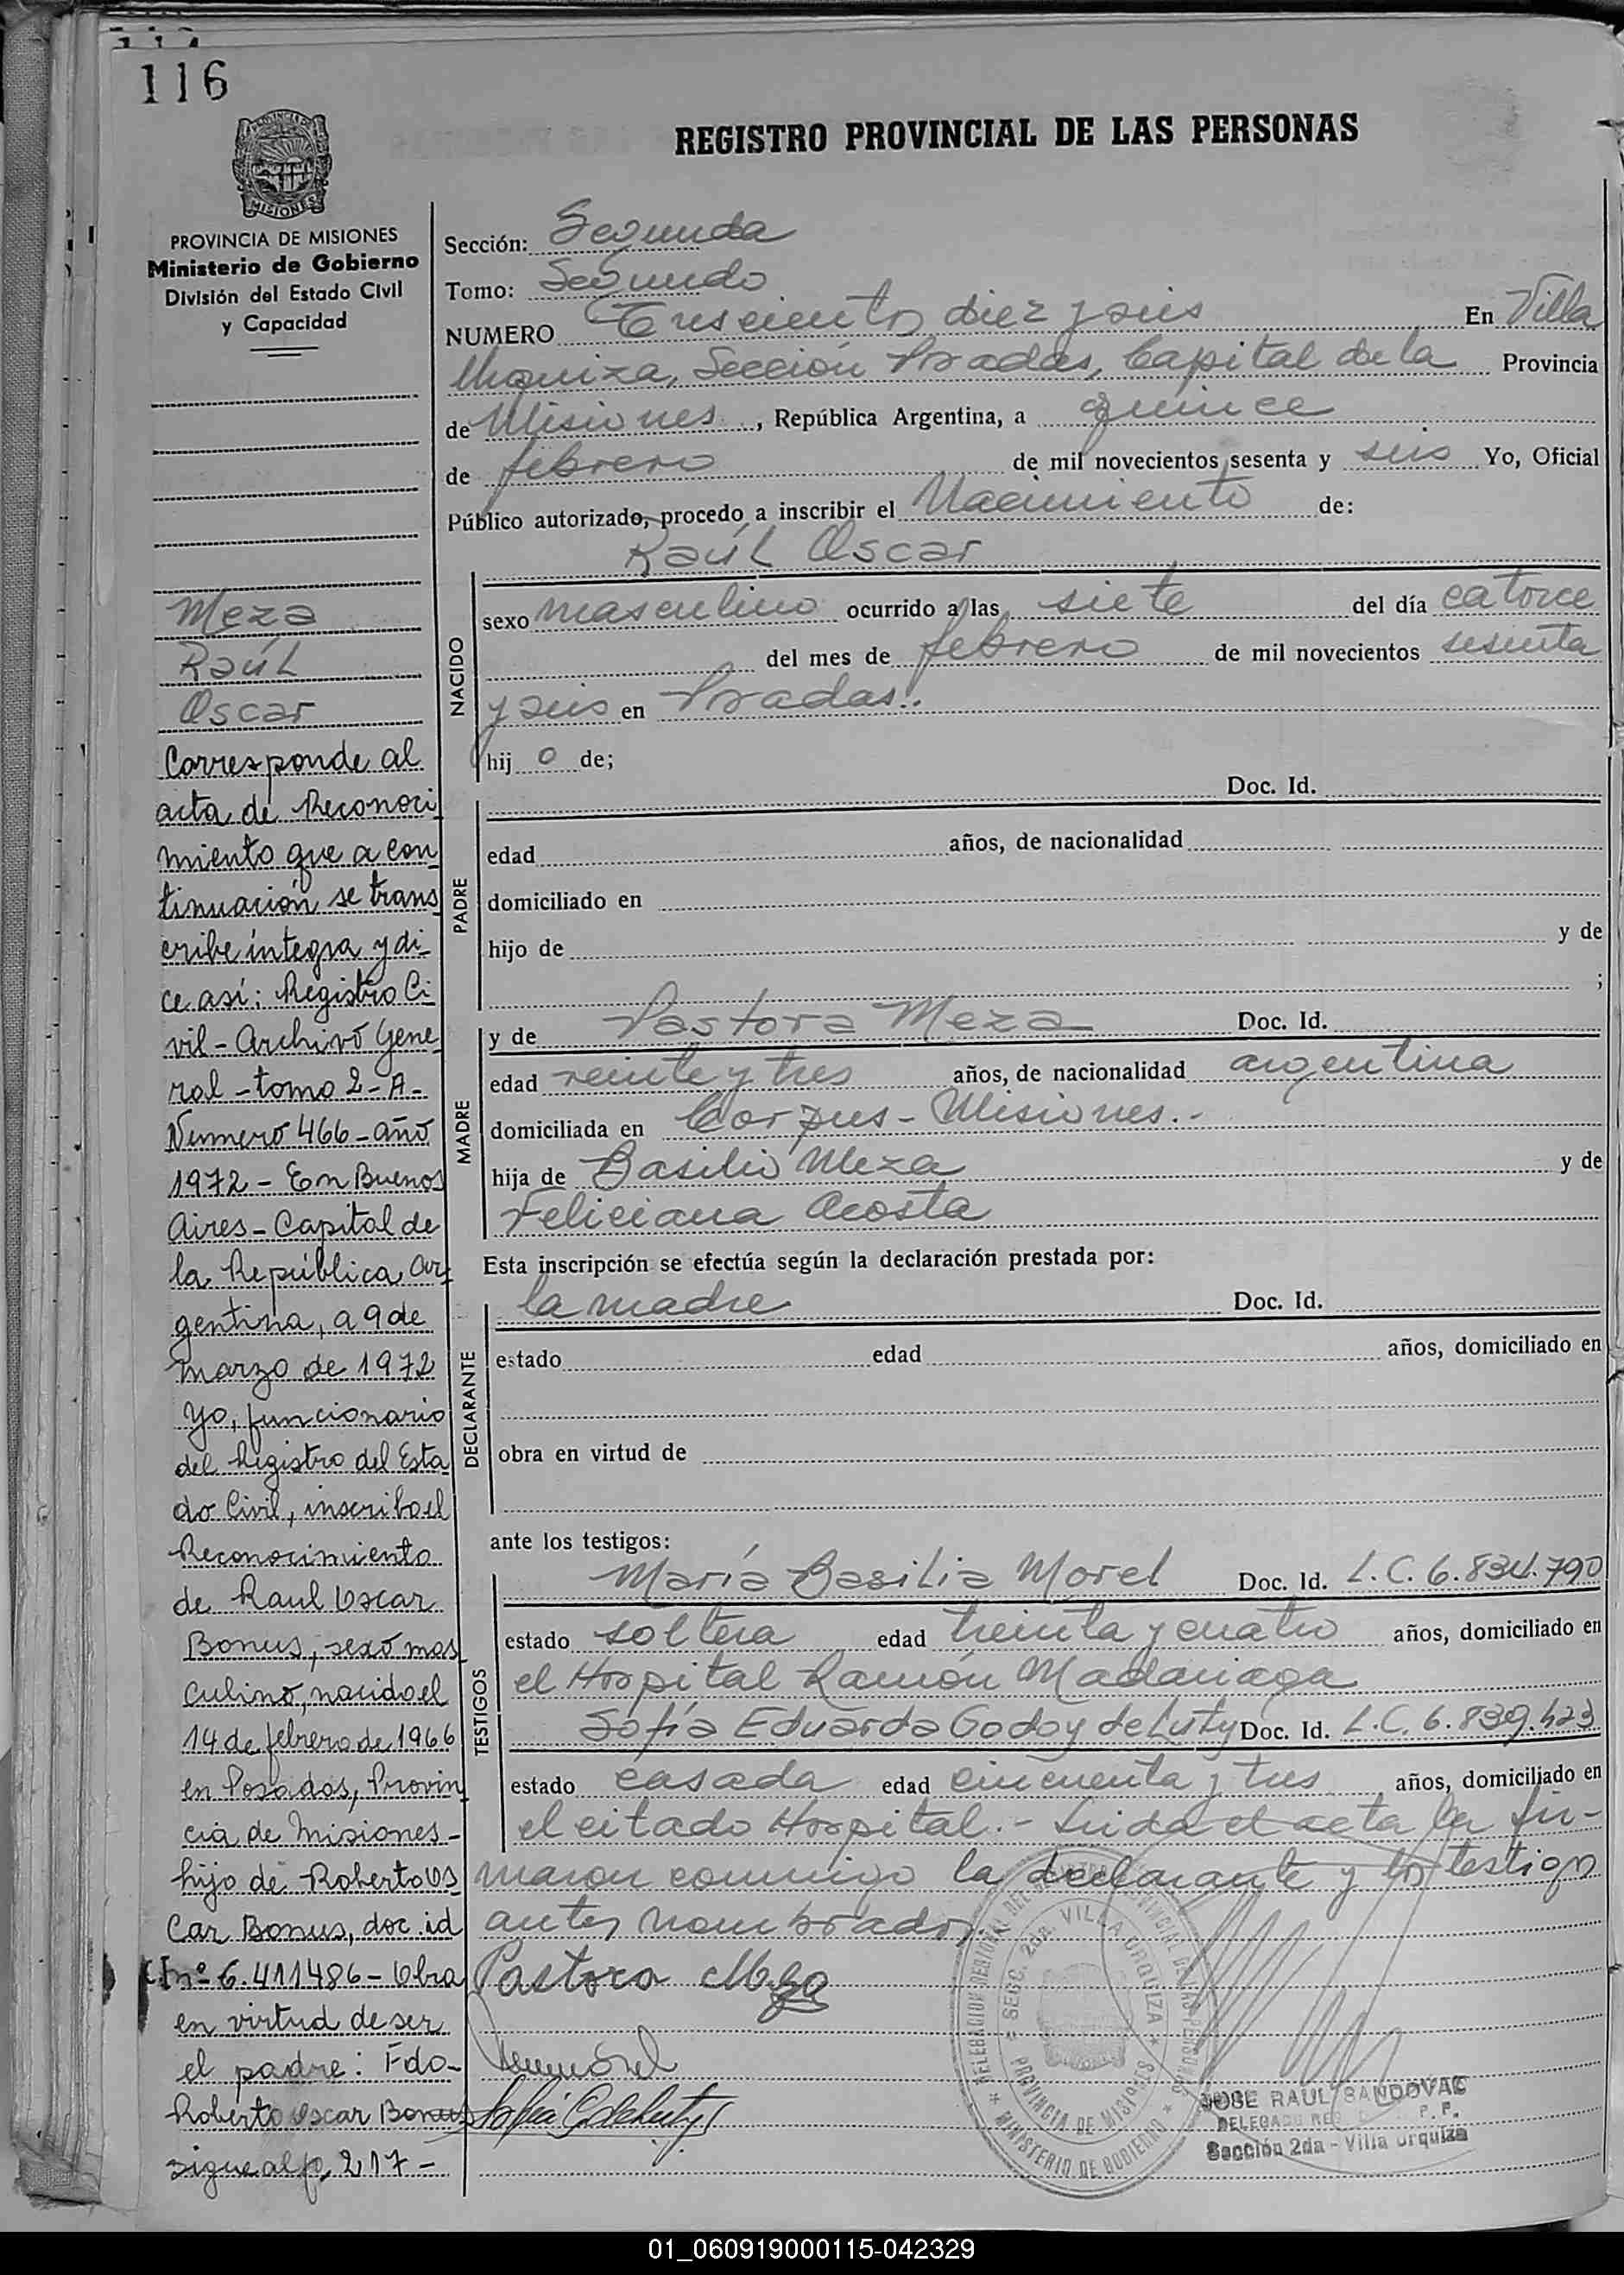 116
REGISTRO PROVINCIAL DE LAS PERSONAS
MISIONES
PROVINCIA DE MISIONES
Ministerio de Gobierno
División del Estado Civil
y Capacidad
Meza
Raúl
Oscar
Corresponde al
acta de Reconoci
miento que a con
tinuación se trans
cribe íntegra y di-
ce así: Registro Ci
vil - Archivo Gene
ral - tomo 2 - A -
Número 466 - año
1972 - En Buenos
Aires - Capital de
la República Ar
gentina, a 9 de
marzo de 1972
Yo, funcionario
del Registro del Esta
do Civil, inscribo el
Reconocimiento
de Raul Oscar
Bonus, sexo mas
culino, nacido el
14 de febrero de 1966
en Posadas, Provin
cia de Misiones -
hijo de Roberto Os
car Bonus, doc. id
nº 6.411486 - Obra
en virtud de ser
el padre: Fdo -
Roberto Oscar Bonus
sigue al fo. 217 -
Sección: Segunda
Tomo: Segundo
NUMERO Trescientos diez y seis En Villa
Urquiza, Sección Posadas, Capital de la Provincia
de Misiones, República Argentina, a quince
de febrero de mil novecientos sesenta y seis Yo, Oficial
Público autorizado, procedo a inscribir el Nacimiento de:
Raúl Oscar
NACIDO
sexo masculino ocurrido a las siete del día catorce
del mes de febrero de mil novecientos sesenta
y seis en Posadas.
hij o de;
PADRE
Doc. Id.
edad años, de nacionalidad
domiciliado en
hijo de y de
;
MADRE
y de Pastora Meza Doc. Id.
edad veinte y tres años, de nacionalidad argentina
domiciliada en Corpus - Misiones.-
hija de Basilio Meza y de
Feliciana Acosta
Esta inscripción se efectúa según la declaración prestada por:
DECLARANTE
la madre Doc. Id.
estado edad años, domiciliado en
obra en virtud de
ante los testigos:
TESTIGOS
María Basilia Morel Doc. Id. L.C. 6.834.790
estado soltera edad treinta y cuatro años, domiciliado en
el Hospital Ramón Madariaga
Sofía Eduarda Godoy de Luty Doc. Id. L.C. 6.839.423
estado casada edad cincuenta y tres años, domiciliado en
el citado Hospital.- Leida el acta la fir-
maron conmigo la declarante y los testigos
antes nombrados.
Pastora Meza
SECC. 2da. VILLA URQUIZA
PROVINCIA DE MISIONES
MINISTERIO DE GOBIERNO
JOSE RAUL SANDOVAL
Sección 2da - Villa Urquiza
01_060919000115-042329